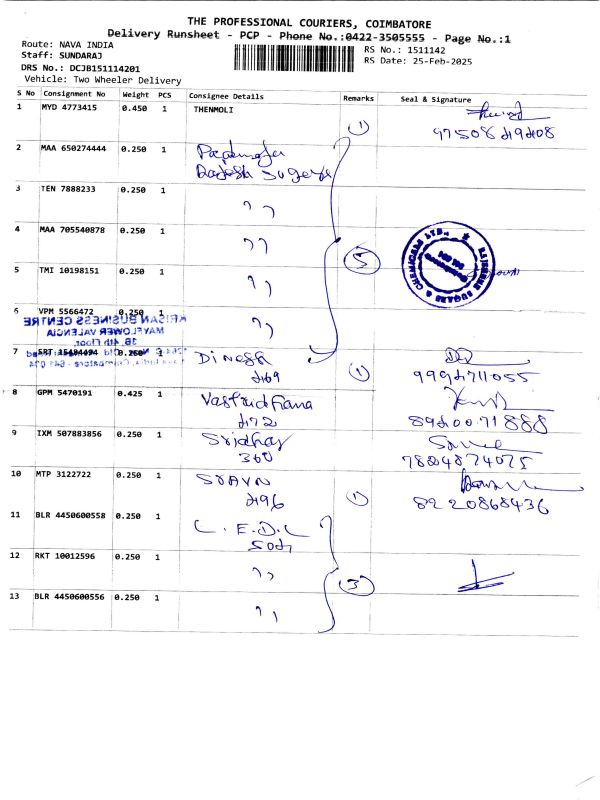 THE PROFESSIONAL COURIERS, COIMBATORE
Delivery Runsheet - PCP - Phone No.:0422-3505555 - Page No.:1
Route: NAVA INDIA
Staff: SUNDARAJ
DRS No.: DCJB151114201
Vehicle: Two Wheeler Delivery
RS No.: 1511142
RS Date: 25-Feb-2025
S No Consignment No Weight PCS Consignee Details Remarks Seal & Signature
1 MYD 4773415 0.450 1 THENMOLI 1
2 MAA 650274444 0.250 1
3 TEN 7888233 0.250 1 ,,
4 MAA 705540878 0.250 1 ,, 5
5 TMI 10198151 0.250 1 ,,
6 VPM 5566472 0.250 1 ,,
KRISAN BUSINESS CENTRE
MAYFLOWER VALENCIA
7 1 Dinesh 1
8 GPM 5470191 0.425 1
9 IXM 507883856 0.250 1 Sridhar
360
10 MTP 3122722 0.250 1 1
8220868436
11 BLR 4450600558 0.250 1 C.E.D.C
12 RKT 10012596 0.250 1 ,, 3
13 BLR 4450600556 0.250 1 ,,